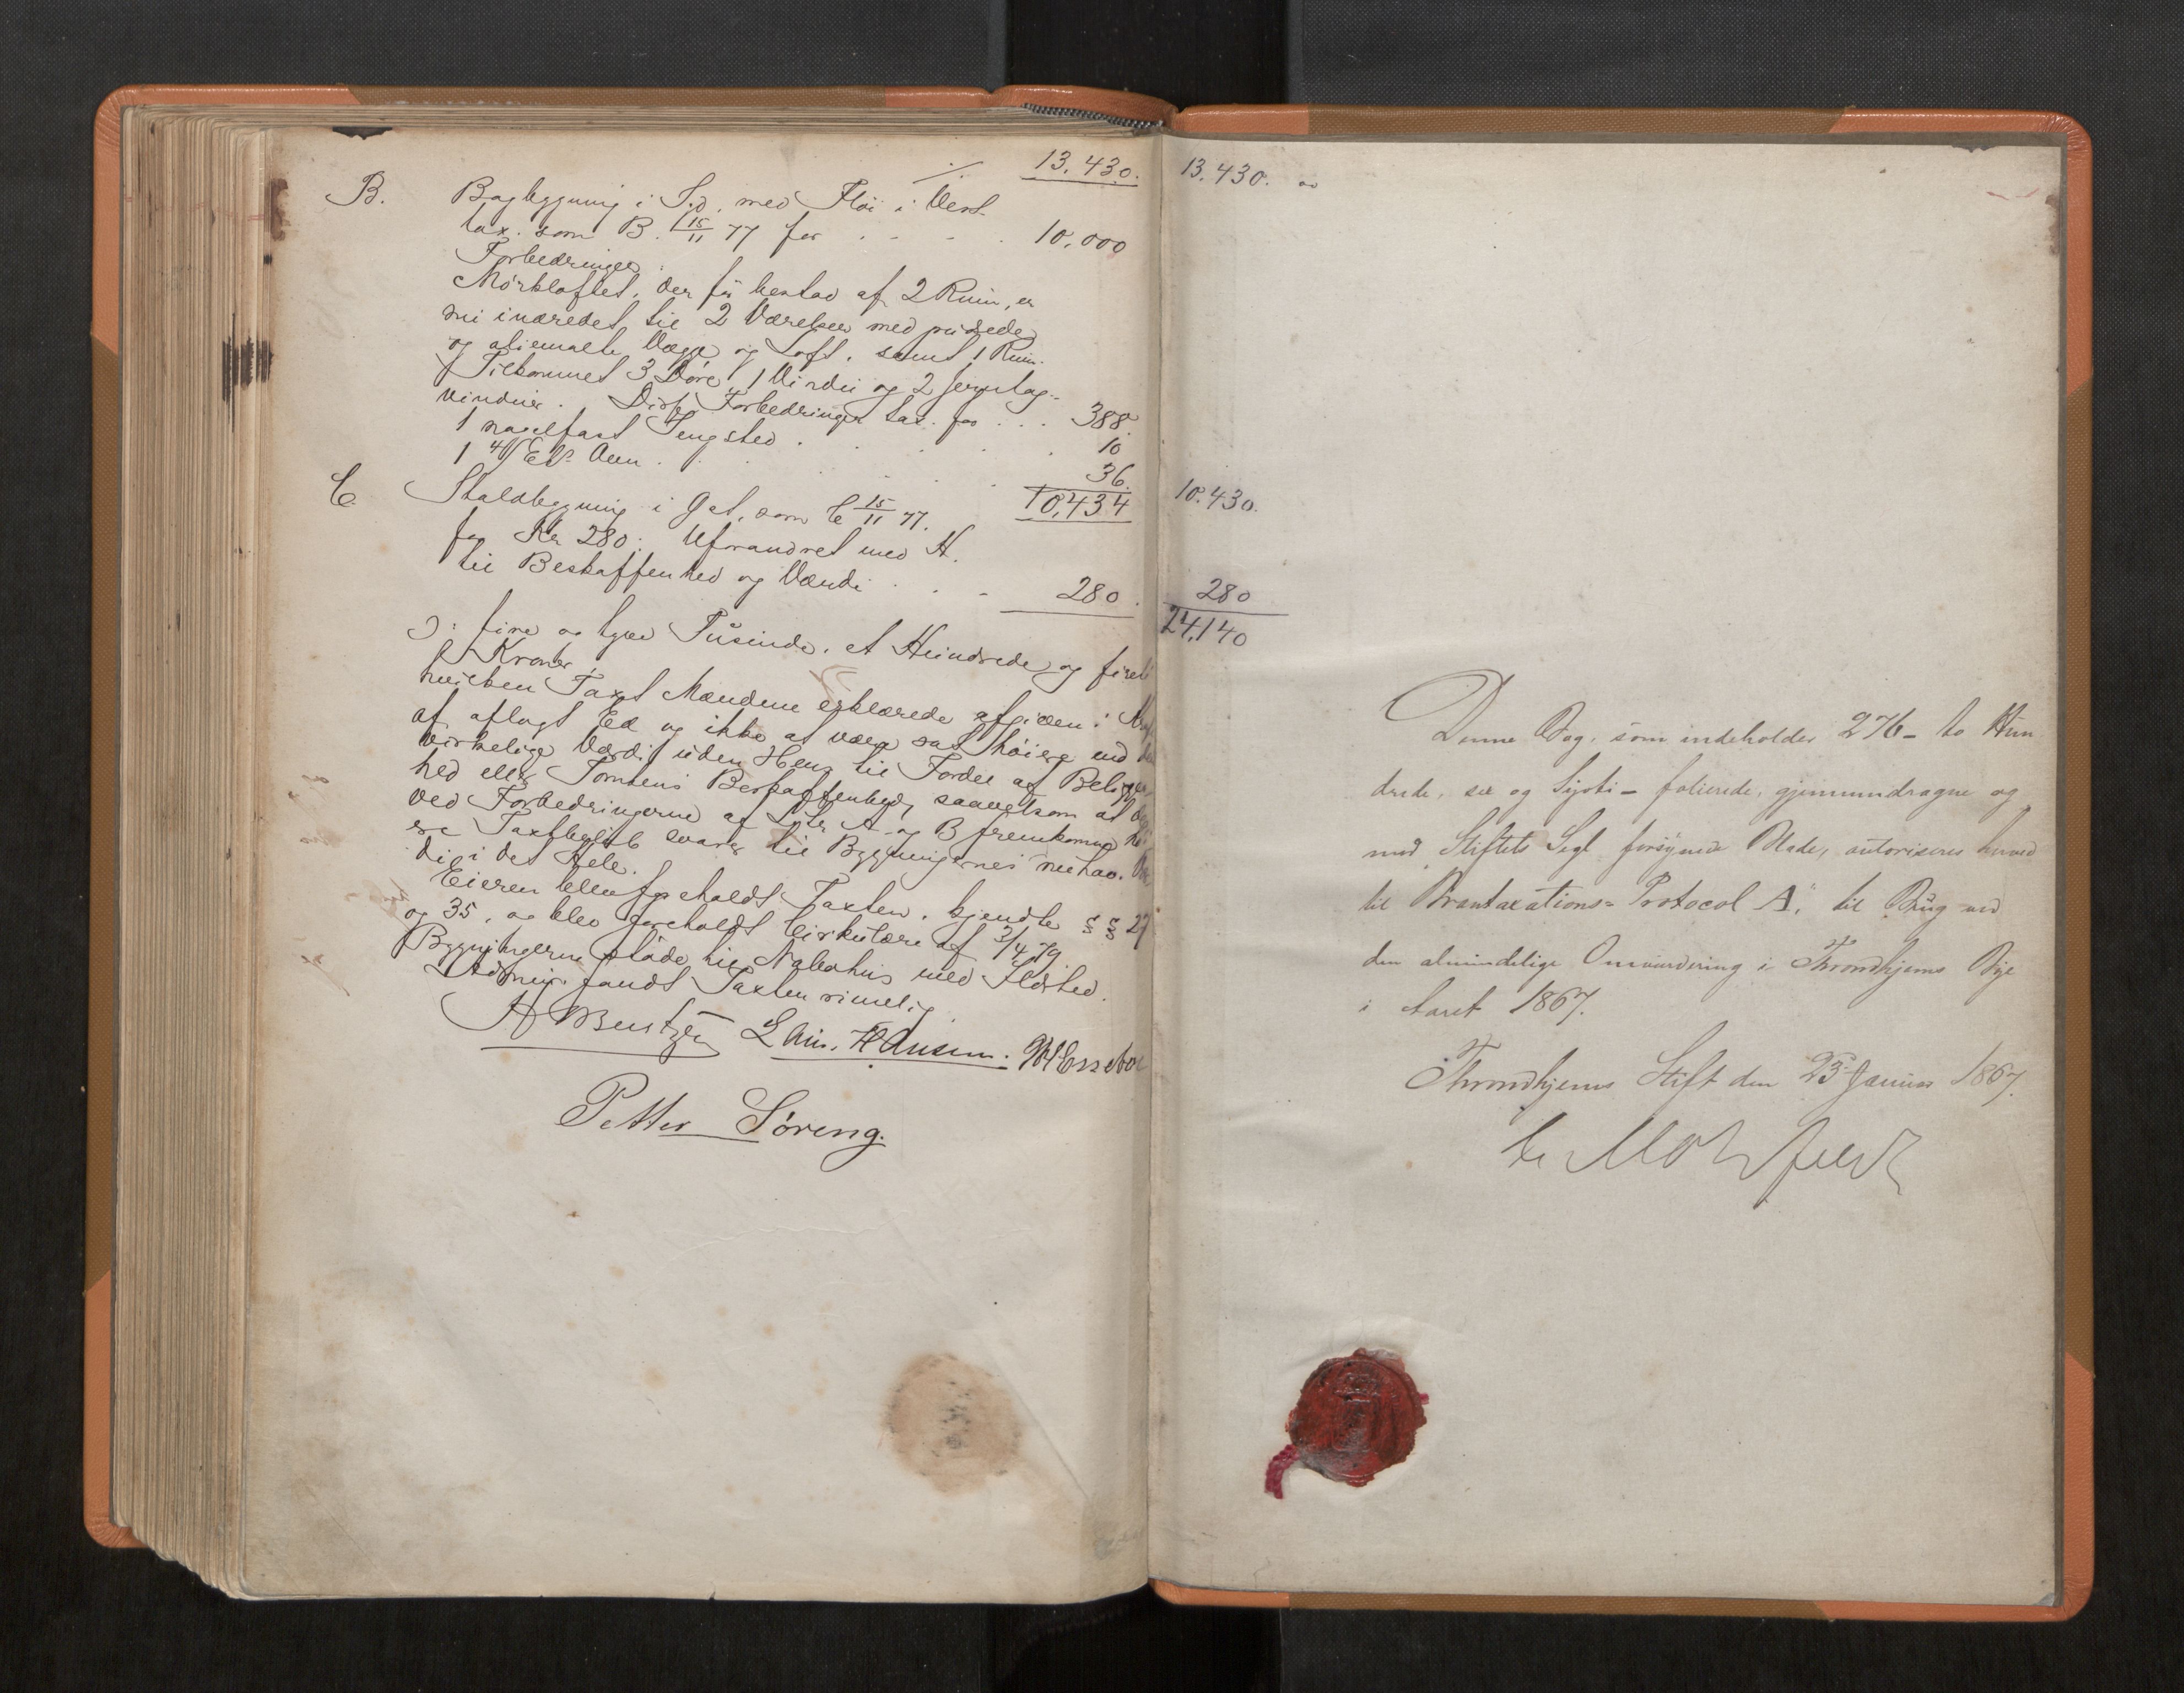 13.430.
B. Bagbygning i S.d. med Fløi i Vest
tax. som B. 15/11 77 for . . . . 10.000
Forbedringer:
Mørkloftet, der før bestod af 2 Rum, er
nu indredet til 2 Værelser med pudsede
og oliemalte Vægge og Loft, samt 1 Rum.
Tilkommet 3 Døre, 1 Vindu og 2 Jerntag-
vinduer. Disse Forbedringer tax. for . . . 388.
1 nagelfast Sengsted . . . . 10
1 Ovn . . . . 36.
10,434
C. Staldbygning i G st. som C 15/11 77.
for Kr 280. Uforandret med H.
til Beskaffenhed og Værdi . . . 280.
ɔ: fire og tyve Tusinde, et Hundrede og fireti
Kroner,
hvilken Taxt Mændene erklærede afgiven i
af aflagt Ed og ikke at være sat høiere end
virkelige Værdi uden Hens. til Fordel af Beligen-
hed eller Tomtens Beskaffenhed, saavelsom at
ved Forbedringerne af Litr A og B fremkomne
Taxtbeløb svarer til Bygningernes nuhav.
di i det Hele.
Eieren foreholdt Taxten, kjendte §§ 27
og 35, og blev foreholdt Cirkulære af 3/4 79
Bygningerne støde til Nabohus med Ildsted.
Admin. fandt Taxten rimelig.
H Bentzen L Chr. Hansen.
Petter Søreng.
13.430.
10.430.
280
24,140
Denne Bog, som indeholder 276 - to Hun
drede, sex og Syvti - folierede, gjennemdragne og
med Stiftets Segl forsynede Blade, autoriseres herved
til Brantaxations= Protocol A, til Brug ved
den almindelige Omvurdering i Throndhjems Bye
i Aaret 1867.
Throndhjems Stift den 23de Januar 1867.